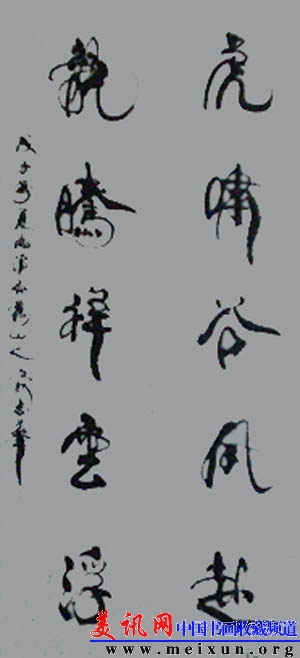 虎啸谷风起
龍騰祥雲浮
戊子年夏
美讯网 中国书画收藏频道
www.meixun.org